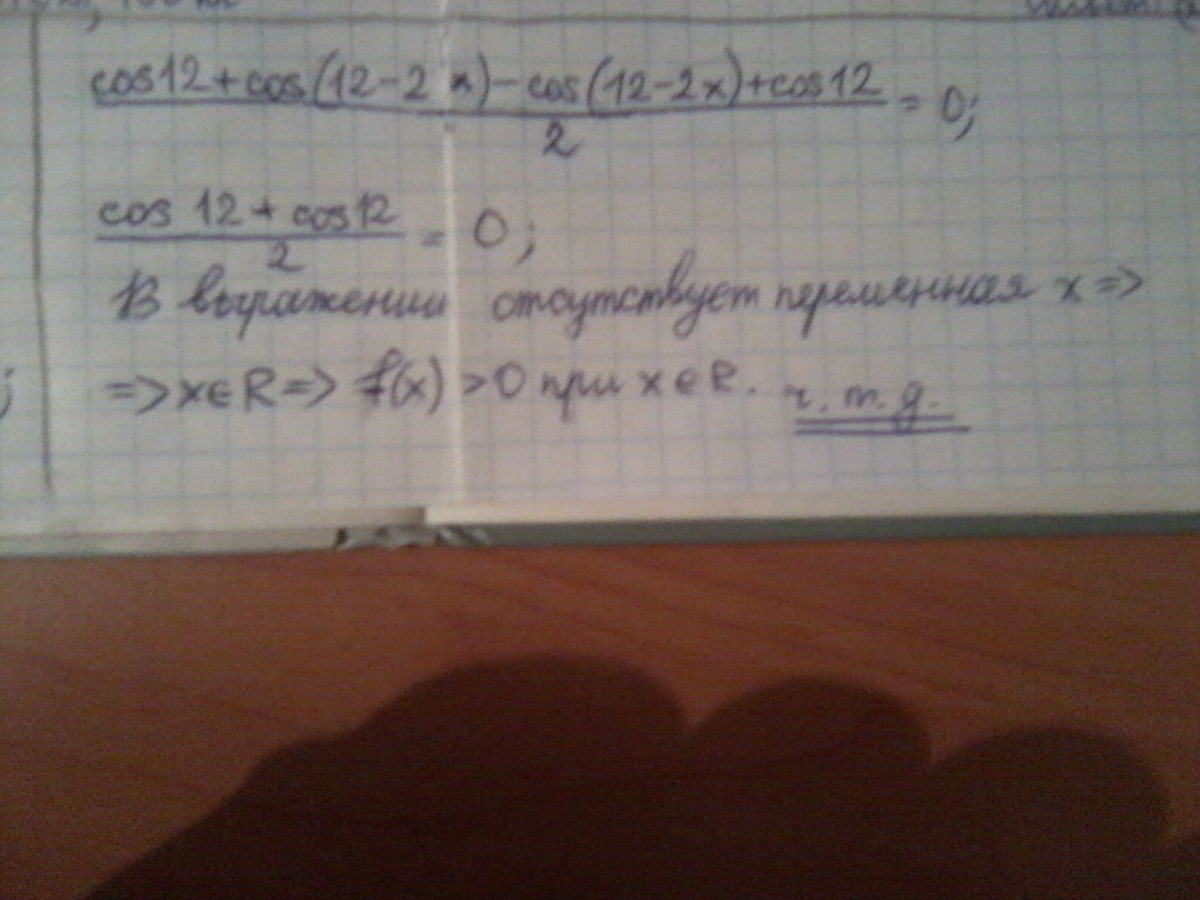 cos12+cos(12-2x)-cos(12-2x)+cos12
2
= 0;
cos 12+cos12
2
= 0;
В выражении отсутствует переменная x =>
=> x∈R => f(x) >0 при x∈R. ч.т.д.